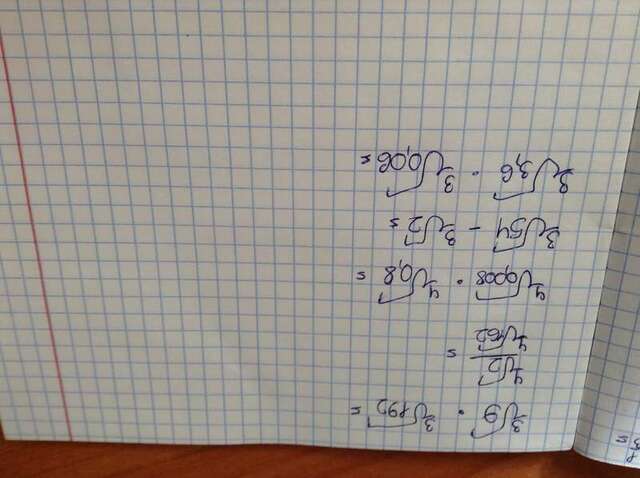 1
3 =
³√9 · ³√192 =
⁴√2 / ⁴√162 =
⁴√0,008 · ⁴√0,8 =
³√54 - ³√2 =
³√3,6 · ³√0,06 =